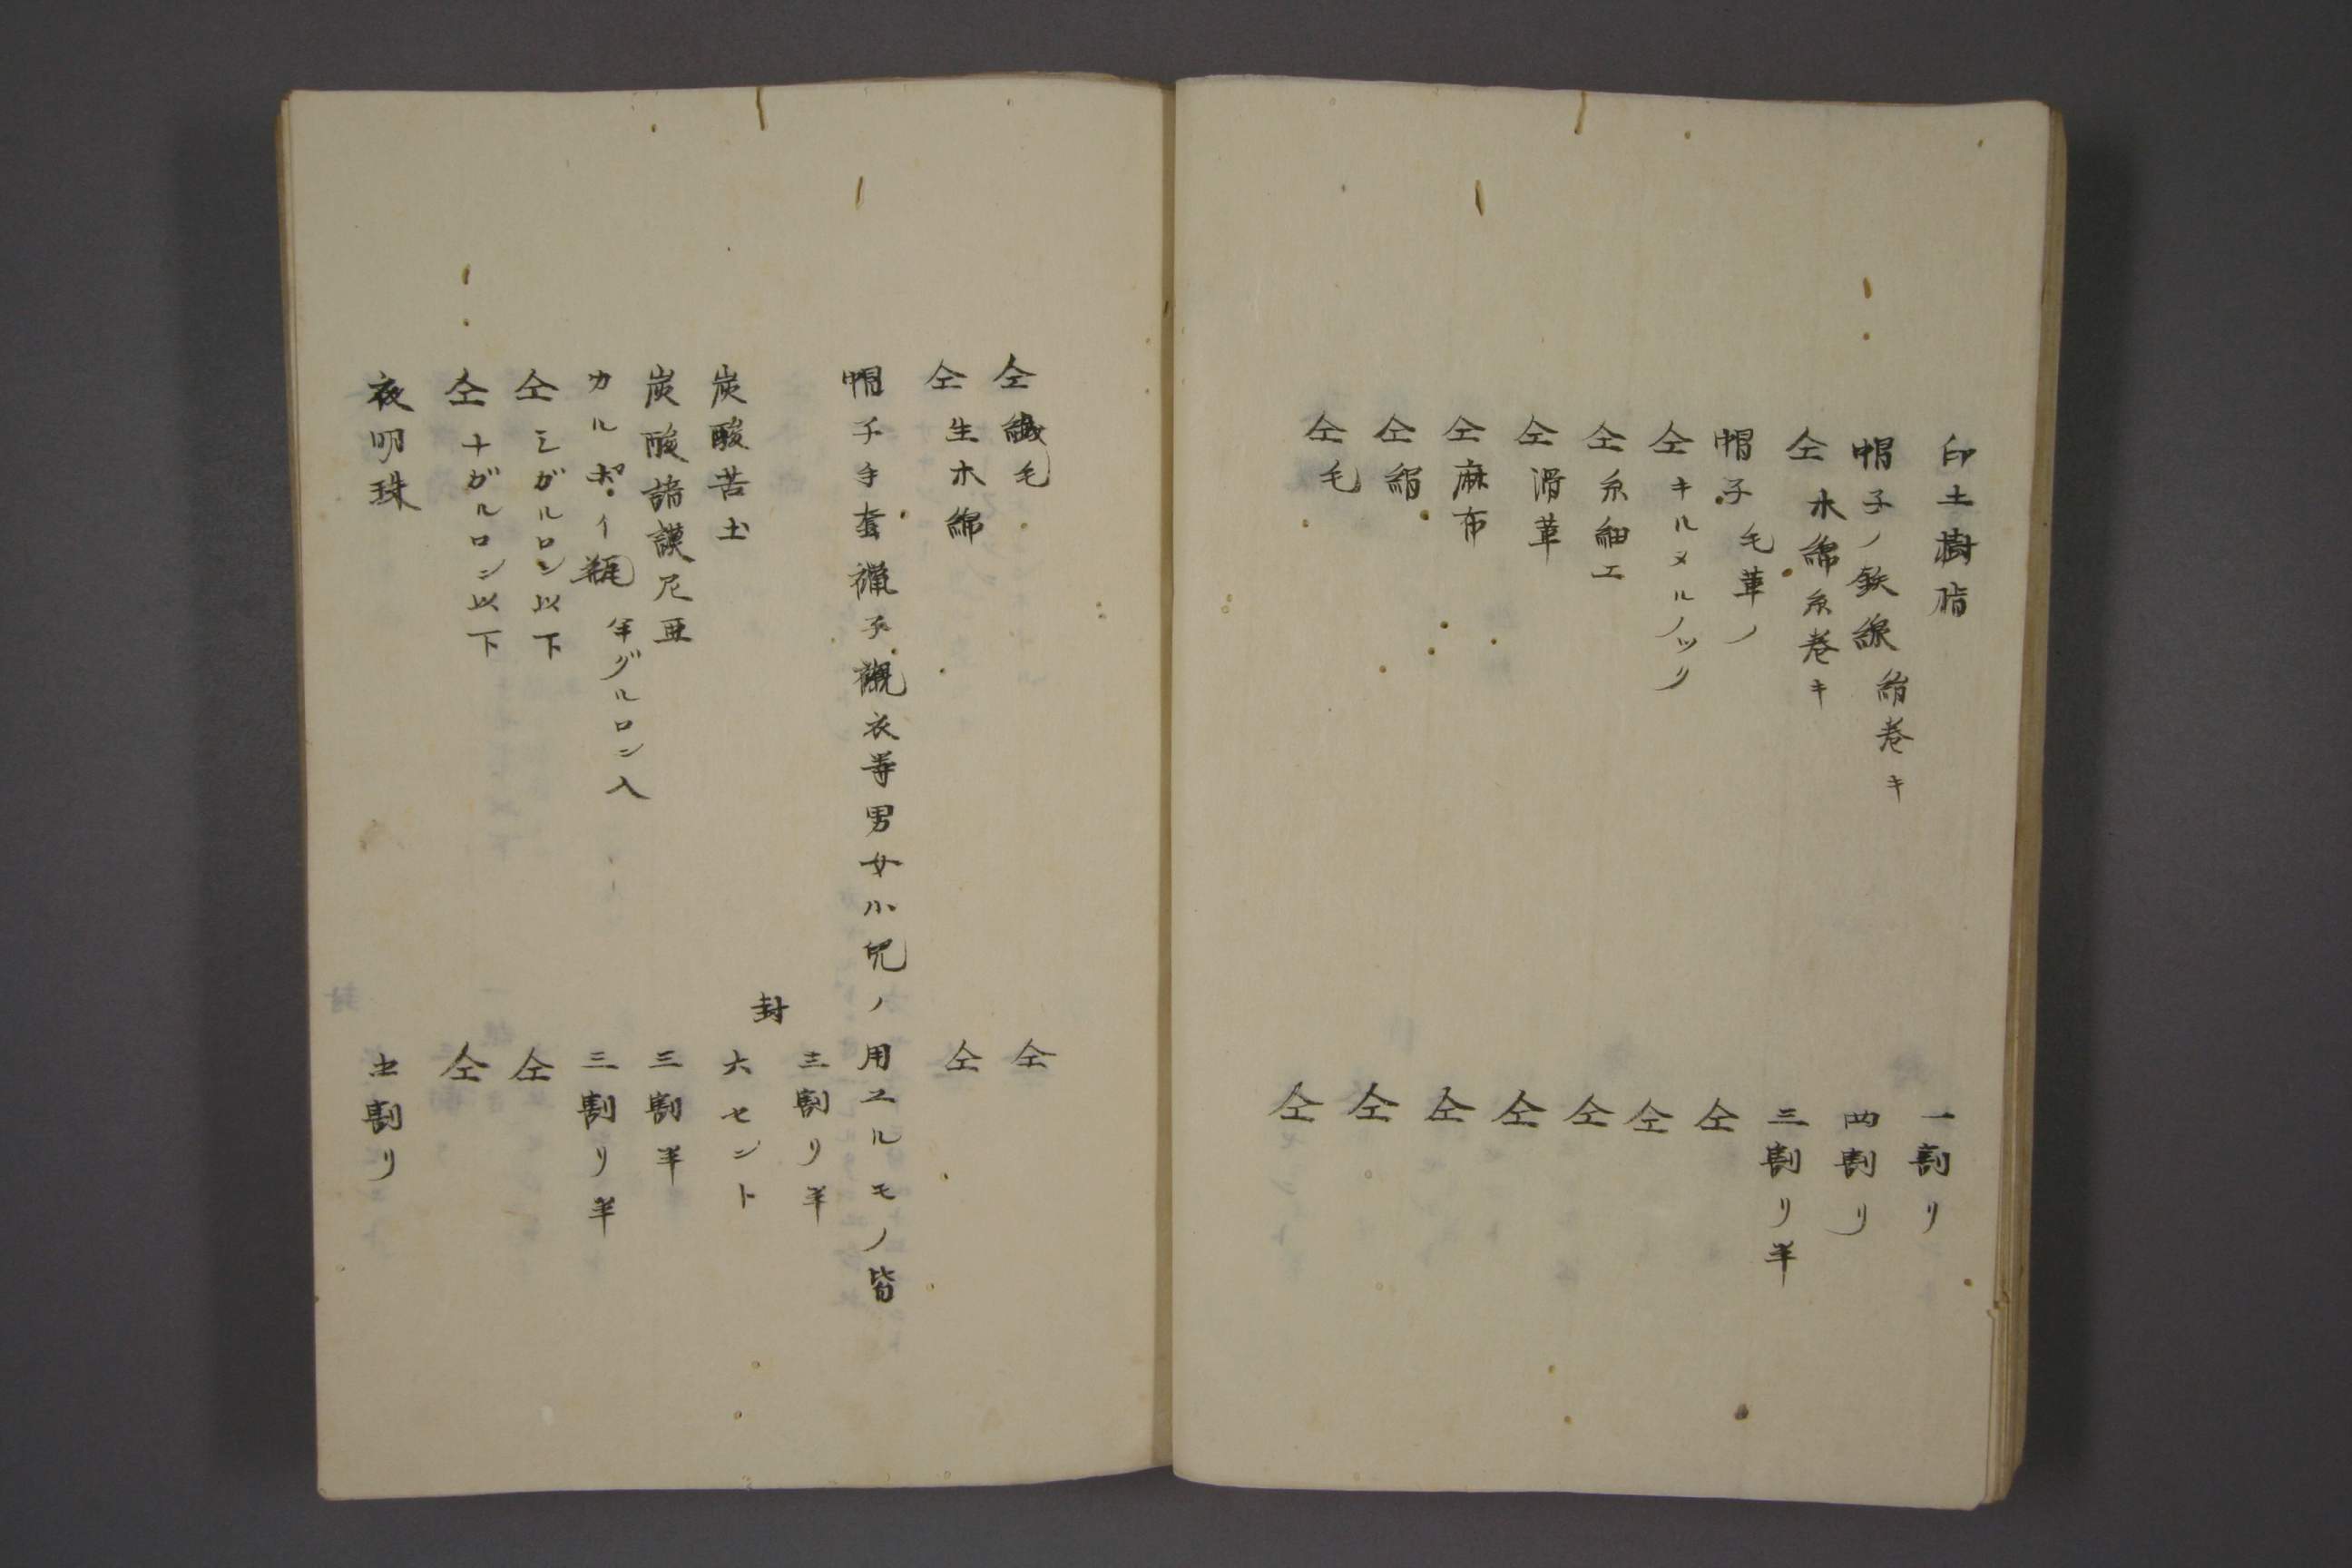 印土樹脂 一割リ
帽子ノ鉄線 絹巻キ 四割リ
仝 木綿糸巻キ 三割リ半
帽子 毛革ノ 仝
仝 キルヌルノツリ 仝
仝 糸細工 仝
仝 滑革 仝
仝 麻布 仝
仝 絹 仝
仝 毛 仝
仝 繊毛 仝
仝 生木綿 仝
帽子手套襪子襯衣等男女小児ノ用ユルモノ皆
三割リ半
炭酸苦土 封 六セント
炭酸諳謨尼亜 三割半
カルボイ瓶 半ガルロン入 三割リ半
仝 三ガルロン以下 仝
仝 十ガルロン以下 仝
夜明珠 割リ